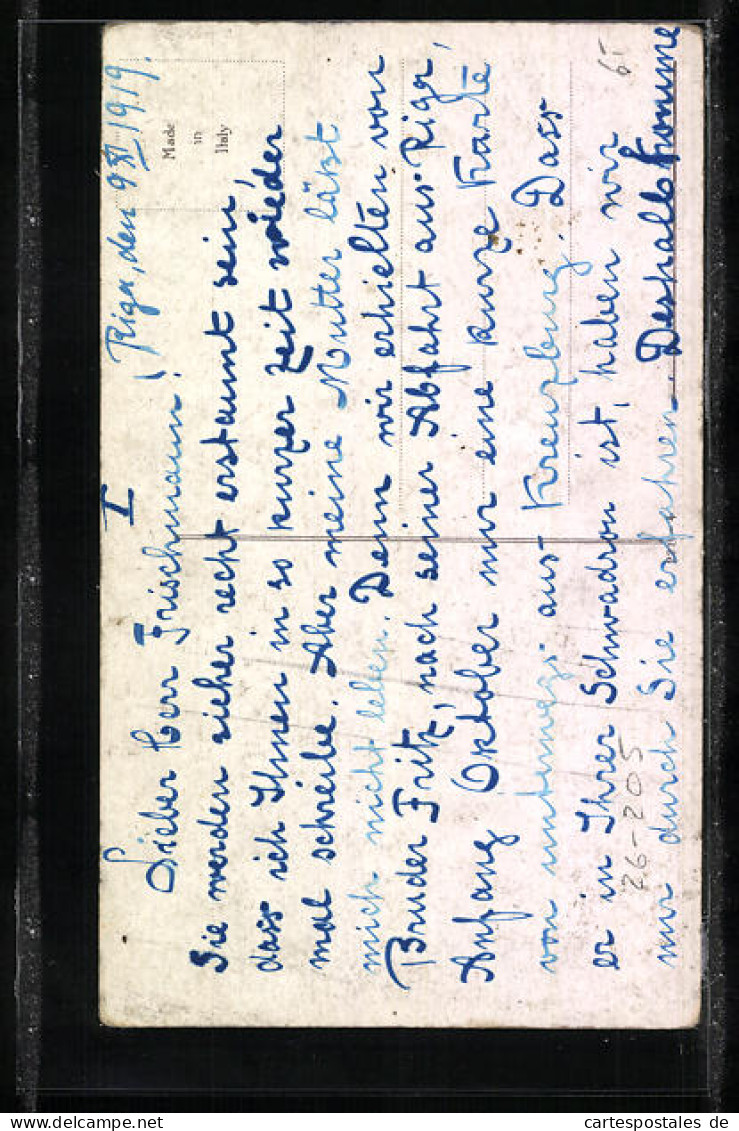 I
Riga, den 9 XI 1919.
Lieber Herr Frischmann!
Sie werden sicher recht erstaunt sein,
dass ich Ihnen in so kurzer Zeit wieder
mal schreibe. Aber meine Mutter läßt
mich nicht leben. Denn wir erhielten von
Bruder Fritz, nach seiner Abfahrt aus Riga,
Anfang Oktober nur eine kurze Karte
von unterwegs aus Kreuzburg. Dass
er in Ihrer Schwadron ist, haben wir
nur durch Sie erfahren. Deshalb komme
Made
in
Italy
26-205
cartespostales de